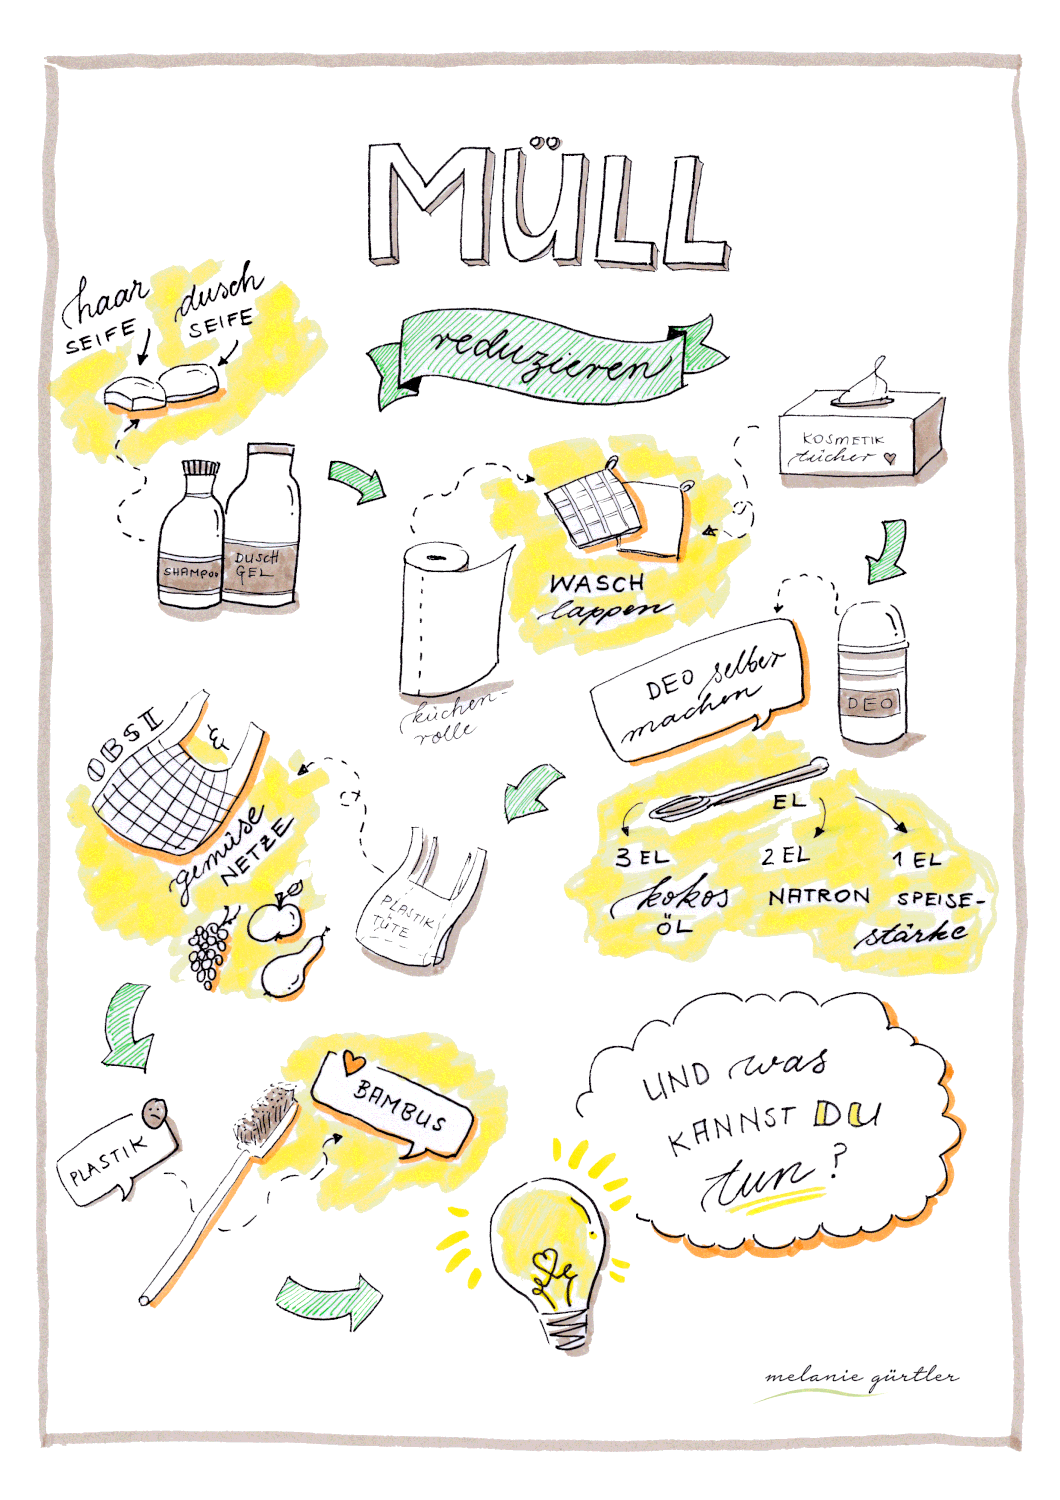 MÜLL
reduzieren
haar
SEIFE
dusch
SEIFE
SHAMPOO
DUSCH
GEL
küchen-
rolle
WASCH
lappen
KOSMETIK
tücher
DEO
DEO selber
machen
EL
3 EL
kokos
ÖL
2 EL
NATRON
1 EL
SPEISE-
stärke
OBST
&
gemüse
NETZE
PLASTIK
TÜTE
PLASTIK
BAMBUS
UND was
KANNST DU
tun?
melanie gürtler